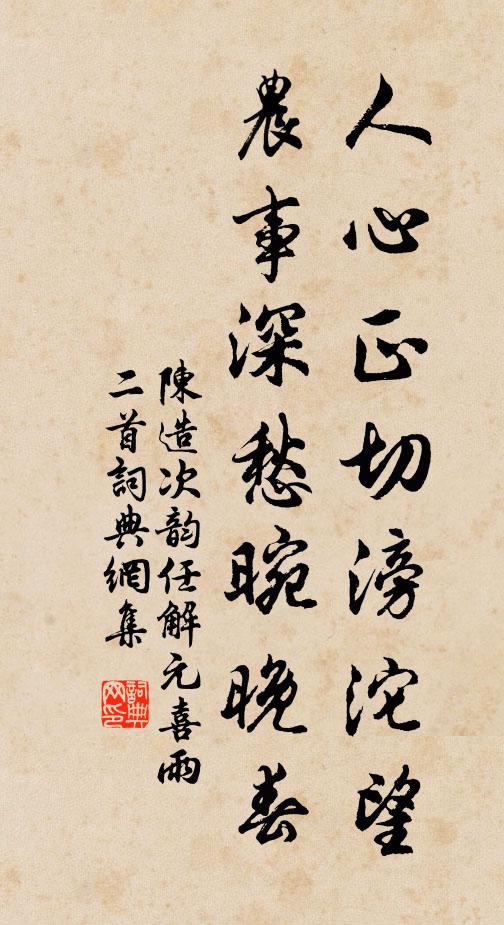 人心正切滂沱望
農事深愁晼晚春
陳造次韵任解元喜雨
二首詞典網集
詞典
网印